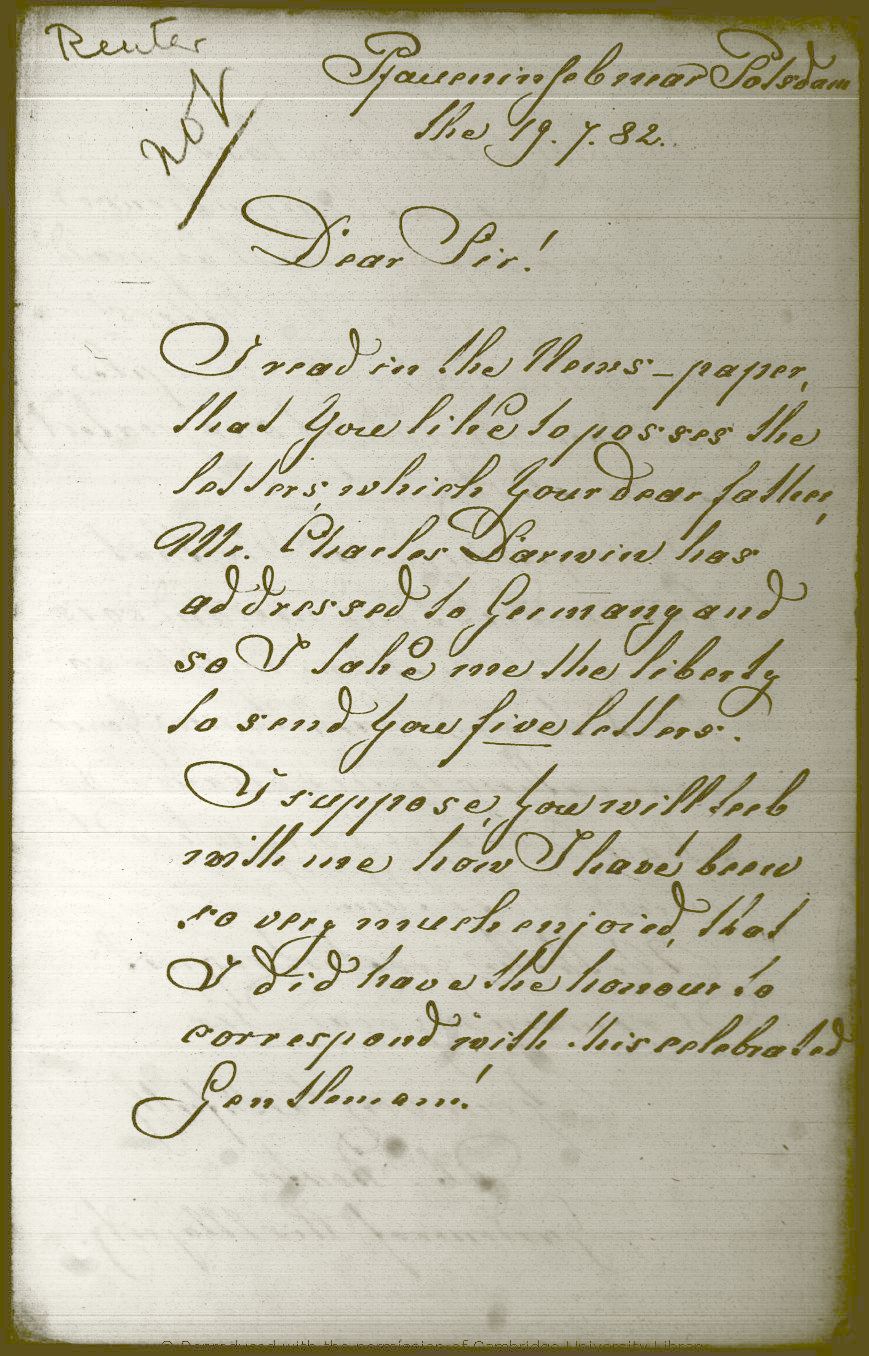 Reuter
not
Pfaueninsel near Potsdam
the 19. 7. 82.
Dear Sir!
I read in the News-paper,
that You like to posses the
letters, which Your dear father,
Mr. Charles Darwin has
addressed to Germany and
so I take me the liberty
to send You five letters.
I suppose, You will feel
with me how I have been
so very much enjoied, that
I did have the honour to
correspond with this celebrated
Gentleman!
© Reproduced with the permission of Cambridge University Library